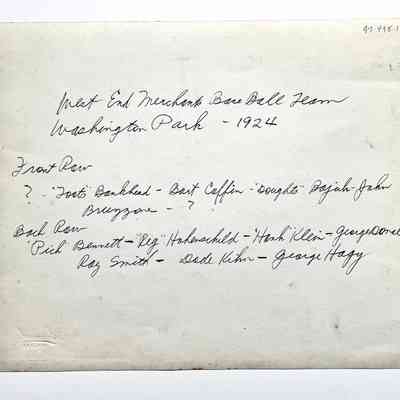 West End Merchants Base Ball Team
Washington Park - 1924
Front Row
? - "Toots" Bankhead - Bart Caffin - "Doughts" Dajah - John
Bruzzone - ?
Back Row
"Pich" Bennett - "Reg" Hohenschild - "Hank" Klein - George Donal
Ray Smith - Dode Kehn - George Hagy